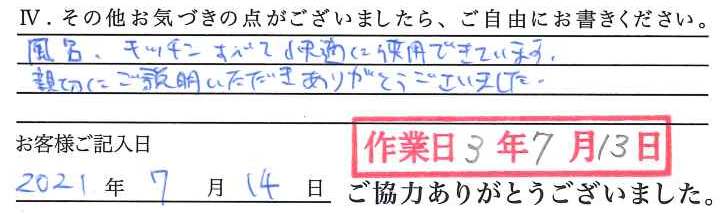 Ⅳ. その他お気づきの点がございましたら、ご自由にお書きください。
風呂、キッチンすべて快適に使用できています。
親切にご説明いただきありがとうございました。
お客様ご記入日
作業日 3 年 7 月 13 日
2021 年 7 月 14 日 ご協力ありがとうございました。